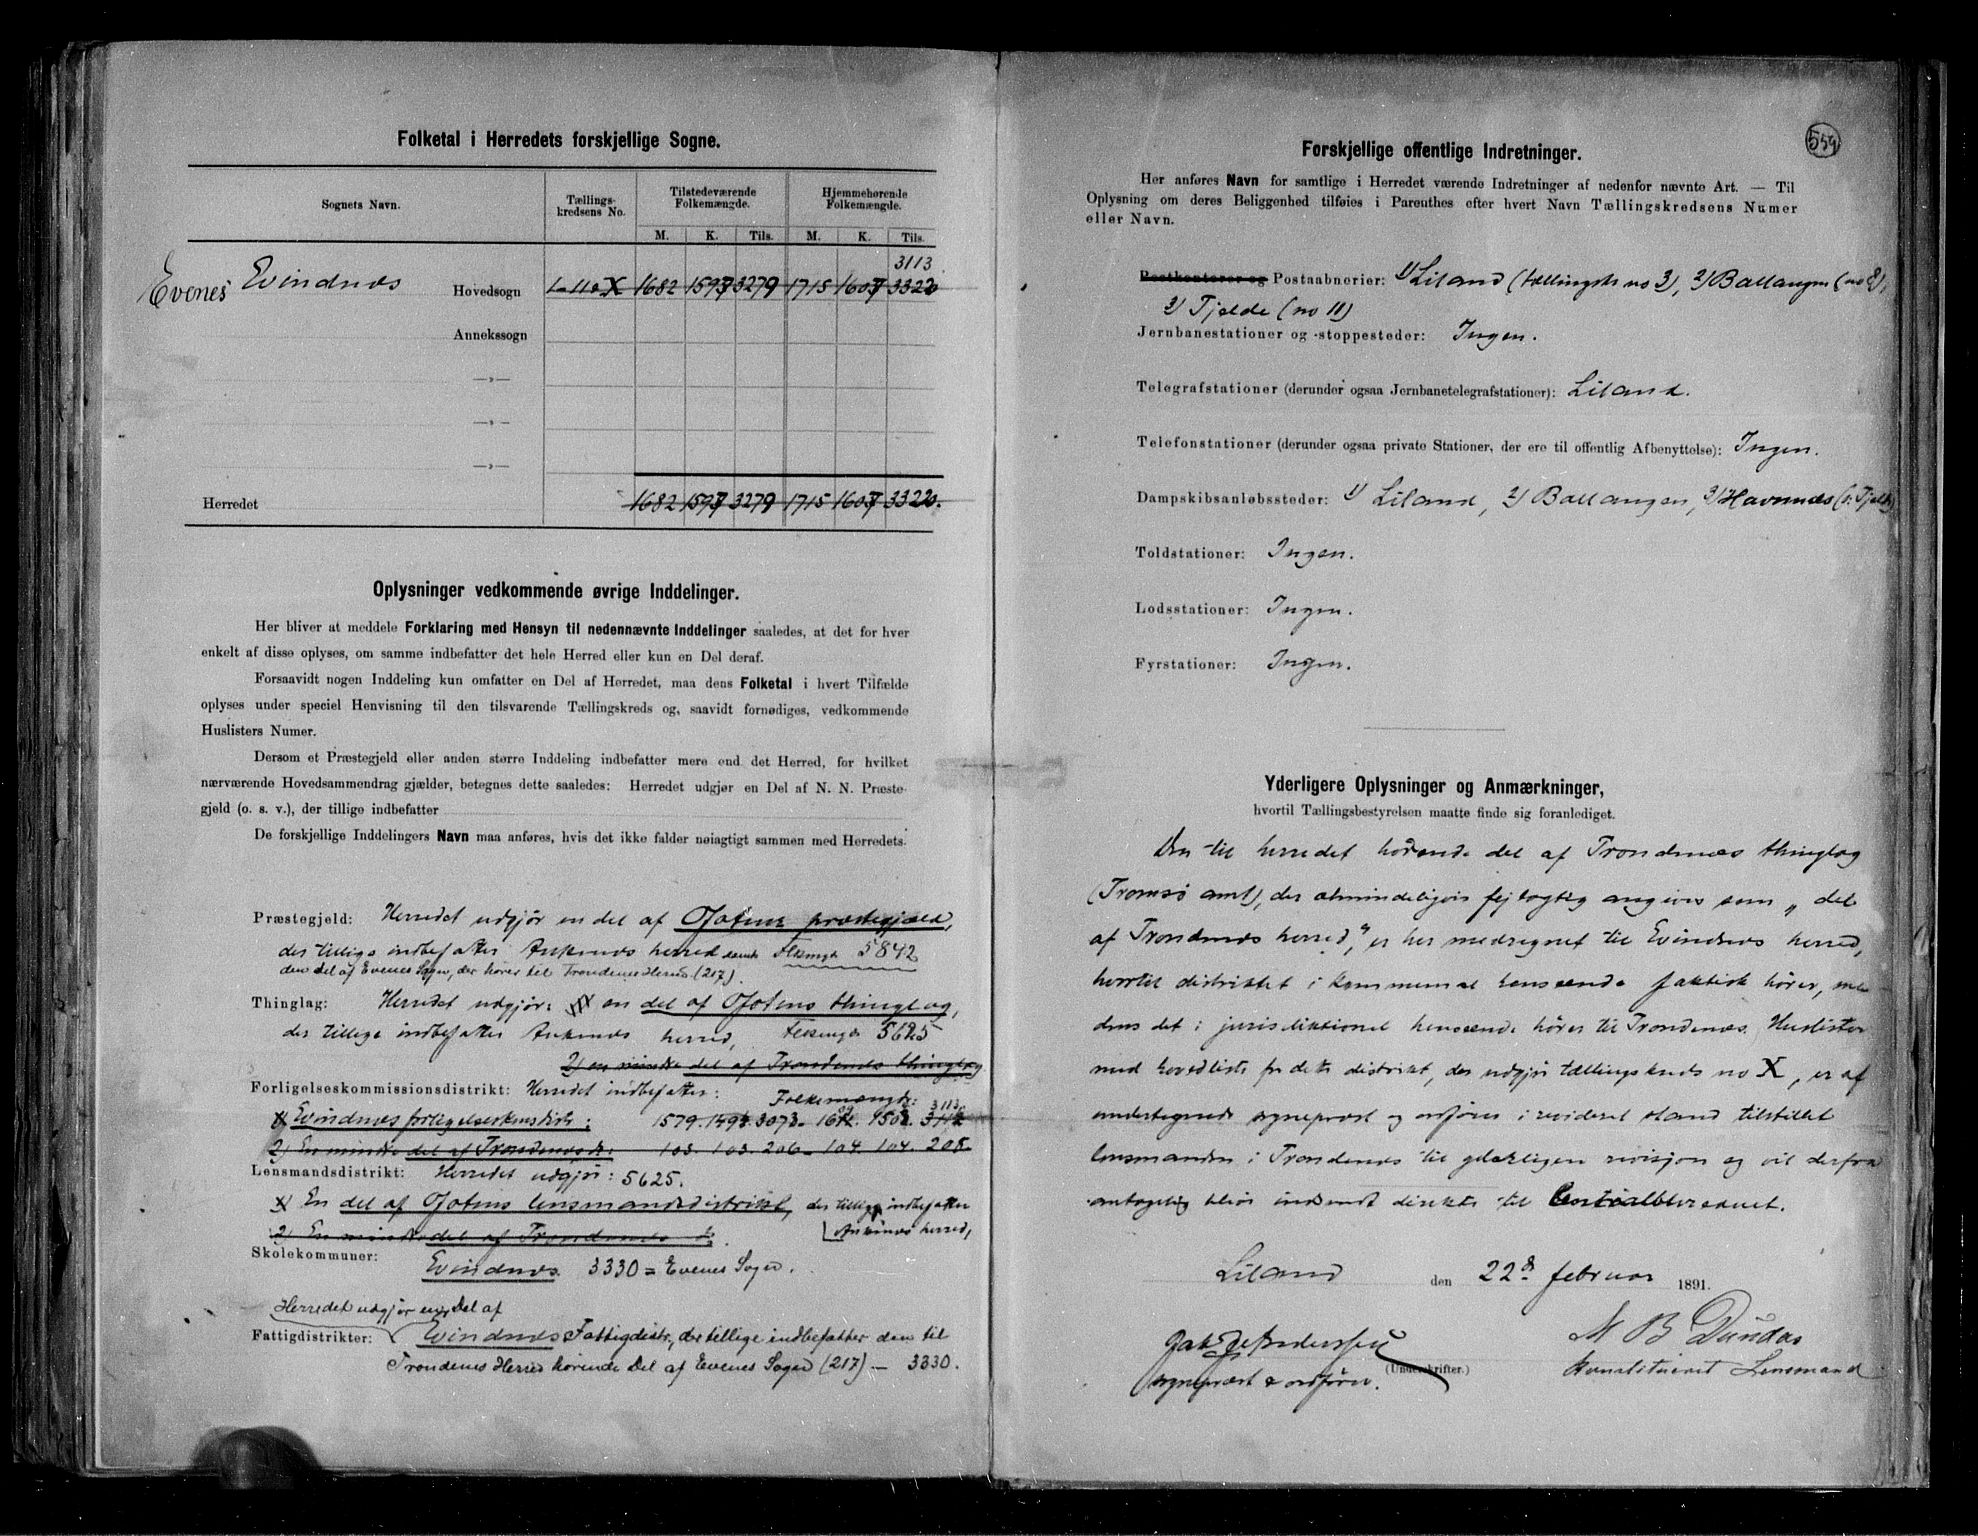 Folketal i Herredets forskjellige Sogne.
Sognets Navn.
Tællings-
kredsens No.
Tilstedeværende
Folkemængde.
Hjemmehørende
Folkemængde.
M. K. Tils. M. K. Tils.
3113
Evenes Evindnes Hovedsogn 1-11 & X 1682 1597 3279 1715 1607 3322
Annekssogn
—„—
—„—
—„—
Herredet 1682 1597 3279 1715 1607 3322.
Oplysninger vedkommende øvrige Inddelinger.
Her bliver at meddele Forklaring med Hensyn til nedennævnte Inddelinger saaledes, at det for hver
enkelt af disse oplyses, om samme indbefatter det hele Herred eller kun en Del deraf.
Forsaavidt nogen Inddeling kun omfatter en Del af Herredet, maa dens Folketal i hvert Tilfælde
oplyses under speciel Henvisning til den tilsvarende Tællingskreds og, saavidt fornødiges, vedkommende
Huslisters Numer.
Dersom et Præstegjeld eller anden større Inddeling indbefatter mere end det Herred, for hvilket
nærværende Hovedsammendrag gjælder, betegnes dette saaledes: Herredet udgjør en Del af N. N. Præste-
gjeld (o. s. v.), der tillige indbefatter
De forskjellige Inddelingers Navn maa anføres, hvis det ikke falder nøiagtigt sammen med Herredets.
Præstegjeld: Herredet udgjør en del af Ofotens præstegjæld,
der tillige indbefatter Ankenes herred samt 5842
den del af Evenes Sogn, der hører til Trondenes Herred (217).
Thinglag: Herredet udgjør: en del af Ofotens thinglag,
der tillige indbefatter Ankenes herred, 5625
2) en mindre del af Trondenes thinglag
Forligelseskommissionsdistrikt: Herredet indbefatter:
Folkemængde:
3113
1) Evindnes forligelseskmsdistr.: 1579. 1494 3073
2) En mindre del af Trondenes d: 103. 103. 206 — 104. 104. 208.
Lensmandsdistrikt: Herredet udgjør: 5625.
1) En del af Ofotens lensmandsdistrikt, der tillige indbefatter
Ankenes herred,
2) En mindre del af Trondenes
Skolekommuner: Evindnes. 3330 = Evenes Sogn.
Herredet udgjør en Del af
Fattigdistrikter: Evindnes Fattigdistr, der tillige indbefatter den til
Trondenes Herred hørende Del af Evenes Sogn (217) — 3330.
559
Forskjellige offentlige Indretninger.
Her anføres Navn for samtlige i Herredet værende Indretninger af nedenfor nævnte Art. — Til
Oplysning om deres Beliggenhed tilføies i Parenthes efter hvert Navn Tællingskredsens Numer
eller Navn.
Postkontorer og Postaabnerier: 1) Liland (tællingskr no 3), 2) Ballangen (no 8),
3) Tjelde (no 11)
Jernbanestationer og -stoppesteder: Ingen.
Telegrafstationer (derunder ogsaa Jernbanetelegrafstationer): Liland.
Telefonstationer (derunder ogsaa private Stationer, der ere til offentlig Afbenyttelse): Ingen.
Dampskibsanløbssteder: 1) Liland, 2) Ballangen, 3) Havnnes (v. Tjelde)
Toldstationer: Ingen.
Lodsstationer: Ingen.
Fyrstationer: Ingen.
Yderligere Oplysninger og Anmærkninger,
hvortil Tællingsbestyrelsen maatte finde sig foranlediget.
Den til herredet hørende del af Trondenes thinglag
(Tromsø amt), der almindeligvis fejlagtig angives som „del
af Trondenes herred," er her medregnet til Evindnes herred,
hvortil distriktet i kommunal henseende faktisk hører, me-
dens det i jurisdiktionel henseende hører til Trondenes. Huslister
med hovedliste for dette distrikt, der udgjør tællingskreds no X, er af
undertegnede sogneprest og ordfører i revideret stand tilstillet
lensmanden i Trondenes til yderligere revisjon og vil derfra
antagelig blive indsendt direkte til Centralbureauet.
Liland den 22de februar 1891.
(Underskrifter.)
sogneprest & ordfører.
M B Dundas
konstitueret Lensmand